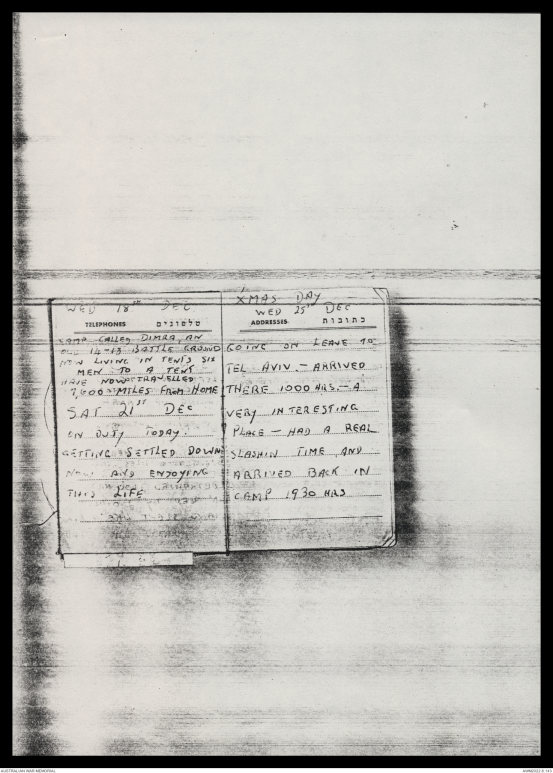 WED 18TH DEC
TELEPHONES טלפונים
CAMP CALLED DIMRA, AN
OLD 14-18 BATTLE GROUND
NOW LIVING IN TENTS SIX
MEN TO A TENT
HAVE NOW TRAVELLED
7,600 MILES FROM HOME
SAT 21ST DEC
ON DUTY TODAY.
GETTING SETTLED DOWN
NOW AND ENJOYING
THIS LIFE
XMAS DAY
WED 25TH DEC
ADDRESSES כתובות
GOING ON LEAVE TO
TEL AVIV. - ARRIVED
THERE 1000 HRS. - A
VERY INTERESTING
PLACE - HAD A REAL
SLASHIN TIME AND
ARRIVED BACK IN
CAMP 1930 HRS
AUSTRALIAN WAR MEMORIAL